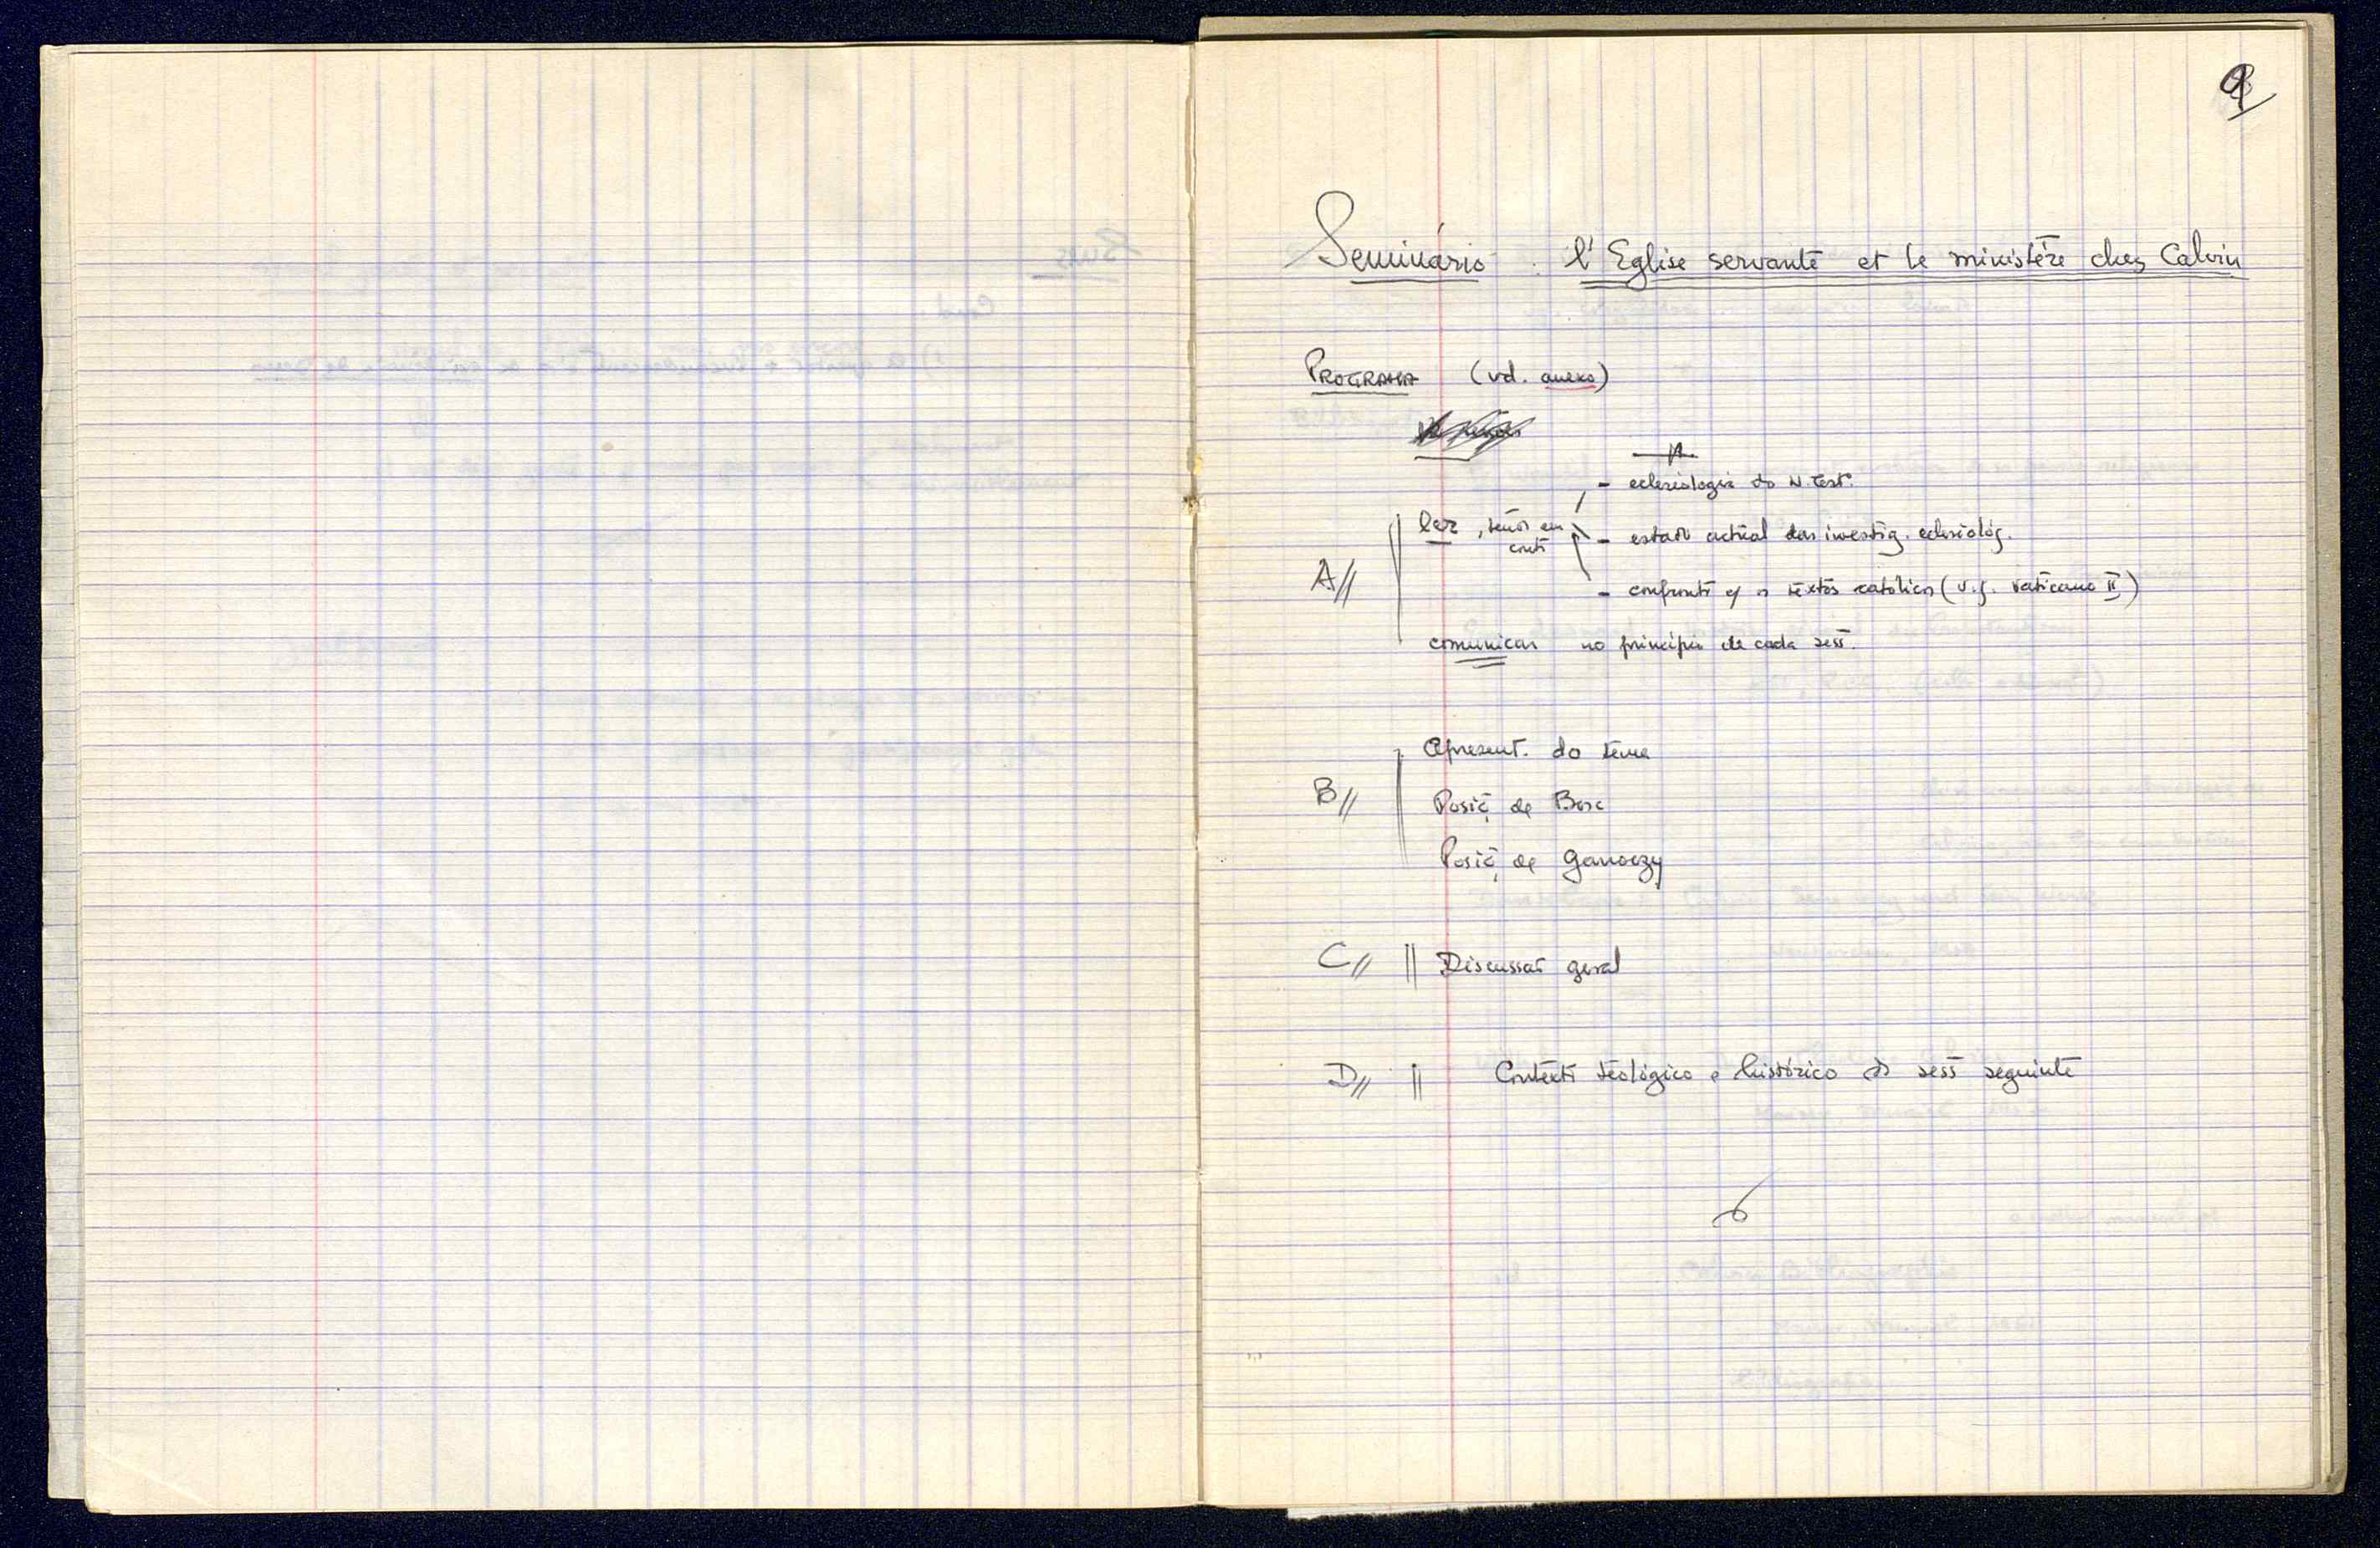 9
Seminário : l'Eglise servante et le ministère chez Calvin
PROGRAMA (vd. anexo)
- eclesiologia do N. Test.
ler, tendo em conta
- estado actual das investig. eclesiológ.
A//
- confronto c/ os textos católicos (v.g. Vaticano II)
comunicar no princípio de cada sess.
Apresent. do tema
B// Posiç. de Bosc
Posiç. de Ganoczy
C// Discussão geral
D// Contexto teológico e histórico da sess seguinte